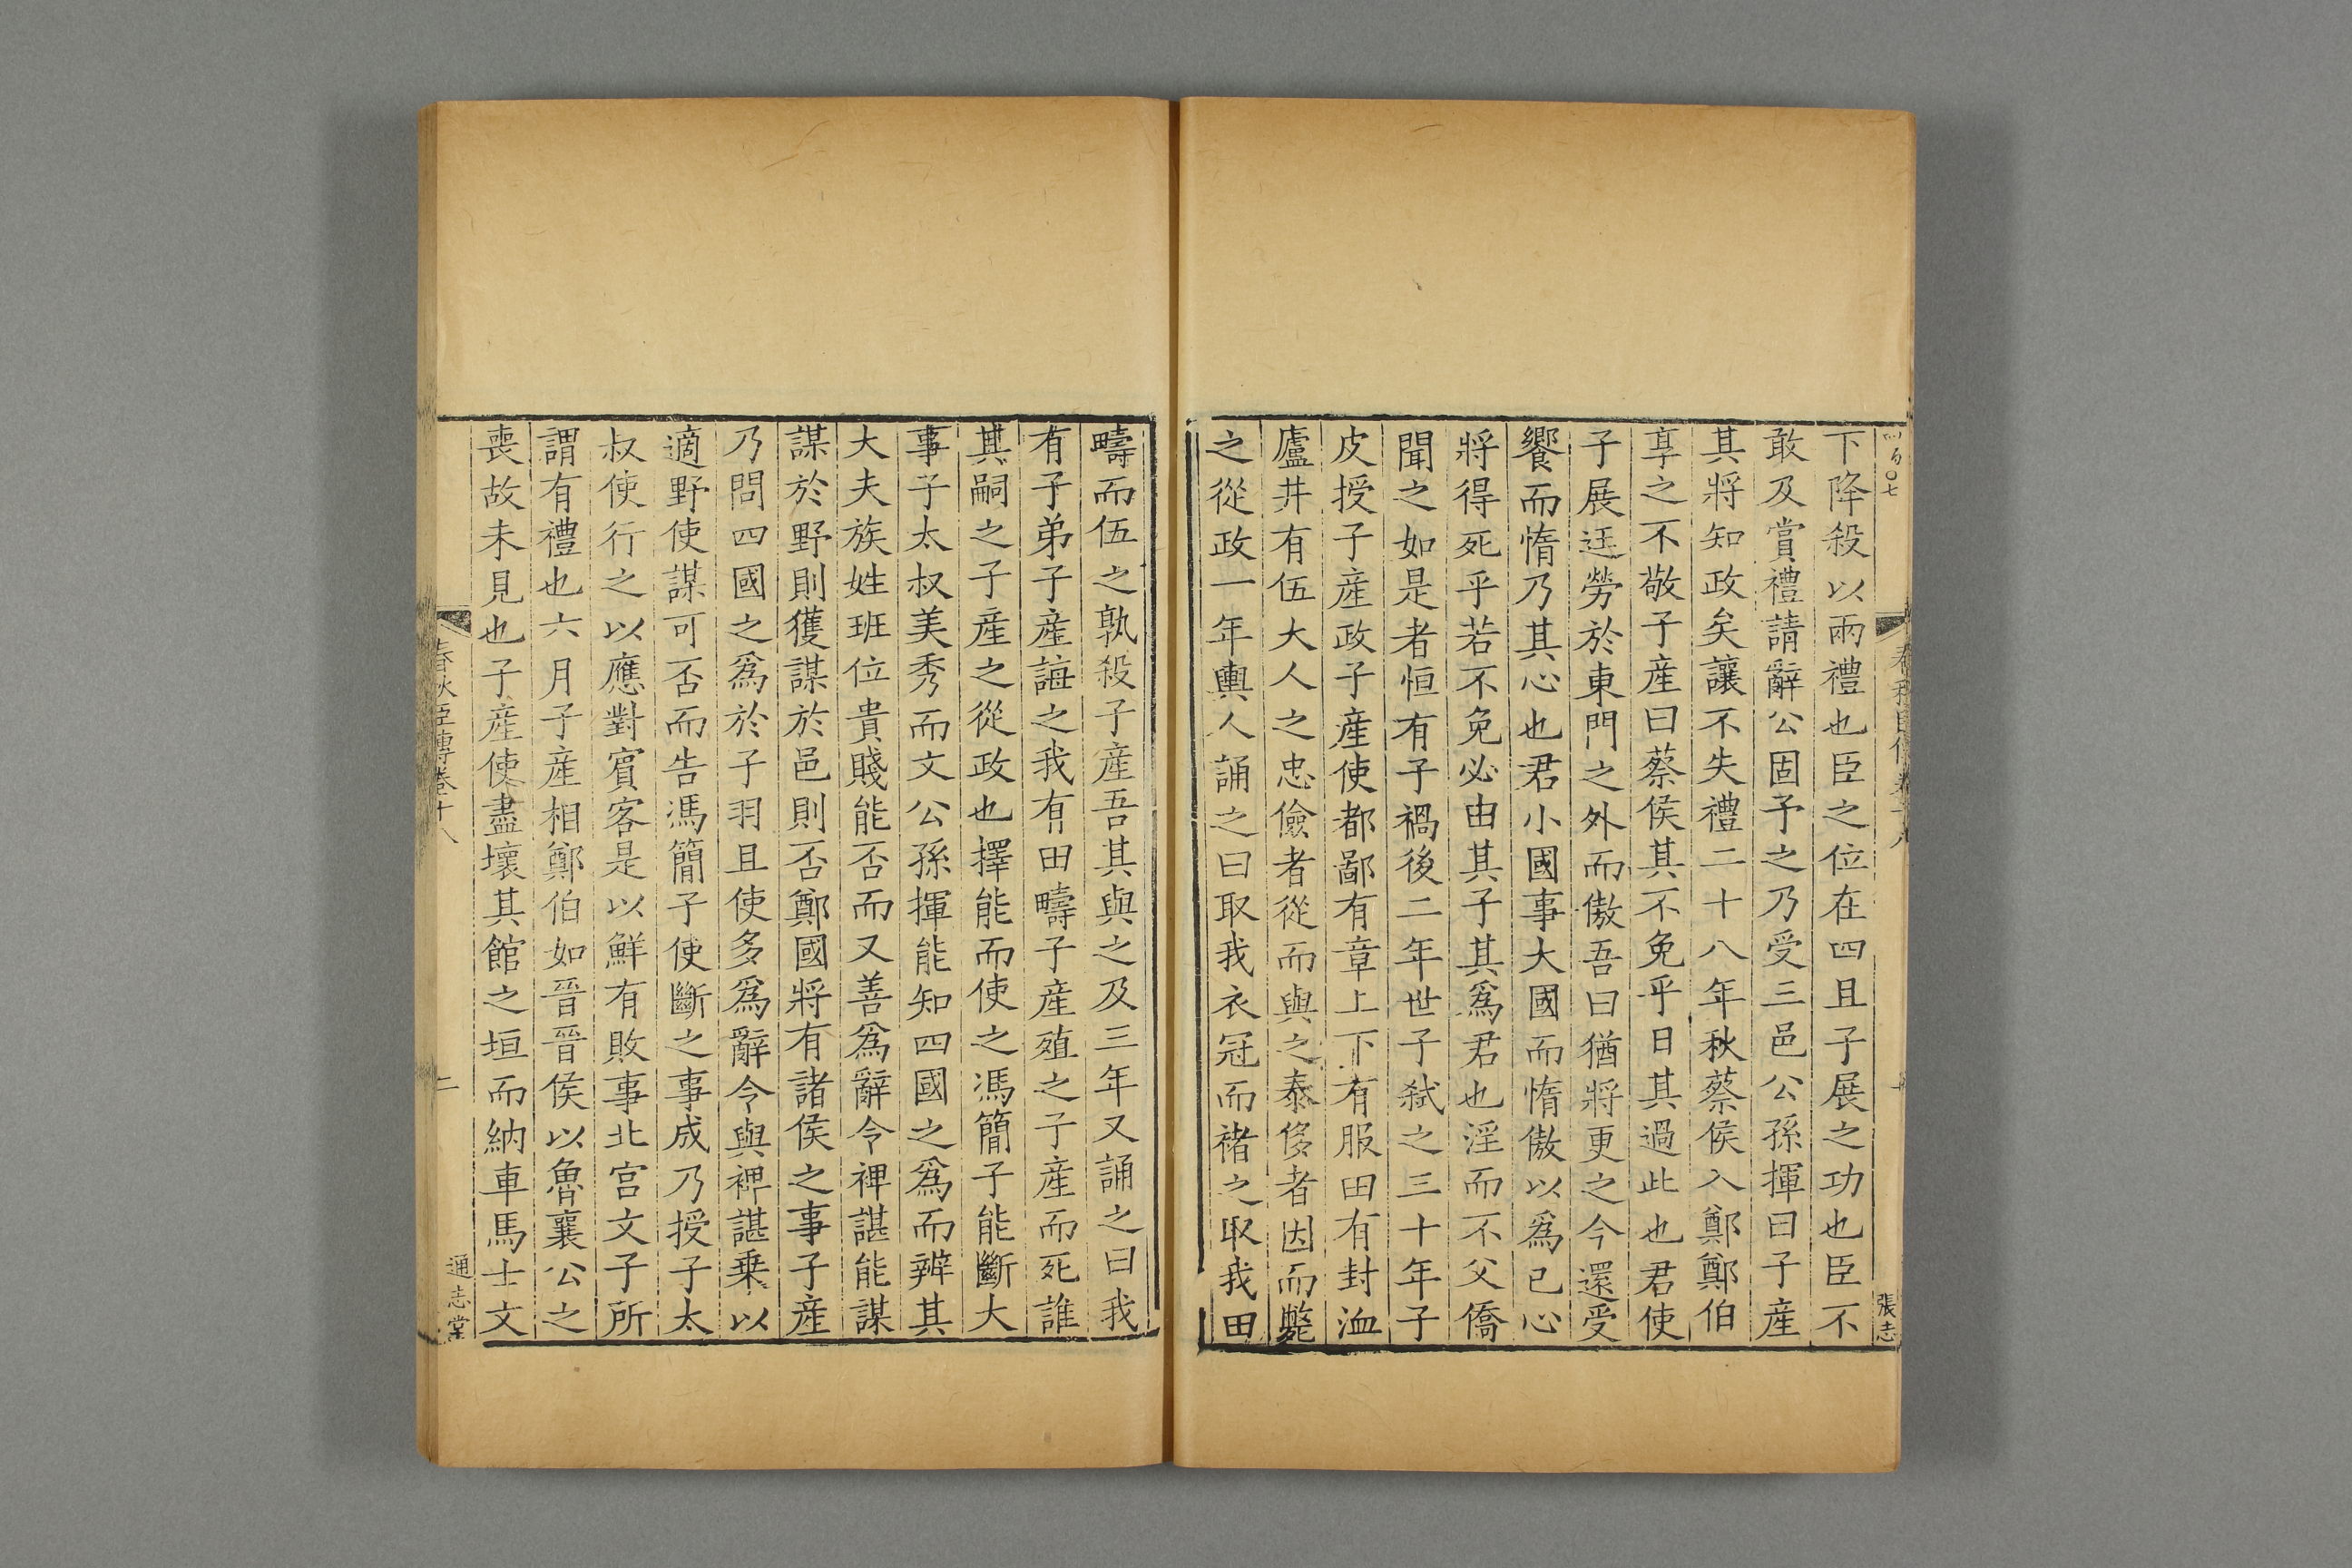 下降殺以兩禮也臣之位在四且子展之功也臣不
敢及賞禮請辭公固予之乃受三邑公孫揮曰子產
其將知政矣讓不失禮二十八年秋蔡侯入鄭鄭伯
享之不敬子產曰蔡侯其不免乎日其過此也君使
子展迋勞於東門之外而傲吾曰猶將更之今還受
饗而惰乃其心也君小國事大國而惰傲以爲己心
將得死乎若不免必由其子其爲君也淫而不父僑
聞之如是者恒有子禍後二年世子弑之三十年子
皮授子產政子產使都鄙有章上下有服田有封洫
廬井有伍大人之忠儉者從而與之泰侈者因而斃
之從政一年輿人誦之曰取我衣冠而褚之取我田
張志
疇而伍之孰殺子產吾其與之及三年又誦之曰我
有子弟子產誨之我有田疇子產殖之子產而死誰
其嗣之子產之從政也擇能而使之馮簡子能斷大
事子太叔美秀而文公孫揮能知四國之爲而辨其
大夫族姓班位貴賤能否而又善爲辭令裨諶能謀
謀於野則獲謀於邑則否鄭國將有諸侯之事子產
乃問四國之爲於子羽且使多爲辭令與裨諶乗以
適野使謀可否而告馮簡子使斷之事成乃授子太
叔使行之以應對賔客是以鮮有敗事北宮文子所
謂有禮也六月子產相鄭伯如晉晉侯以魯襄公之
喪故未見也子產使盡壞其館之垣而納車馬士文
春秋臣傳卷十八
二
通志堂